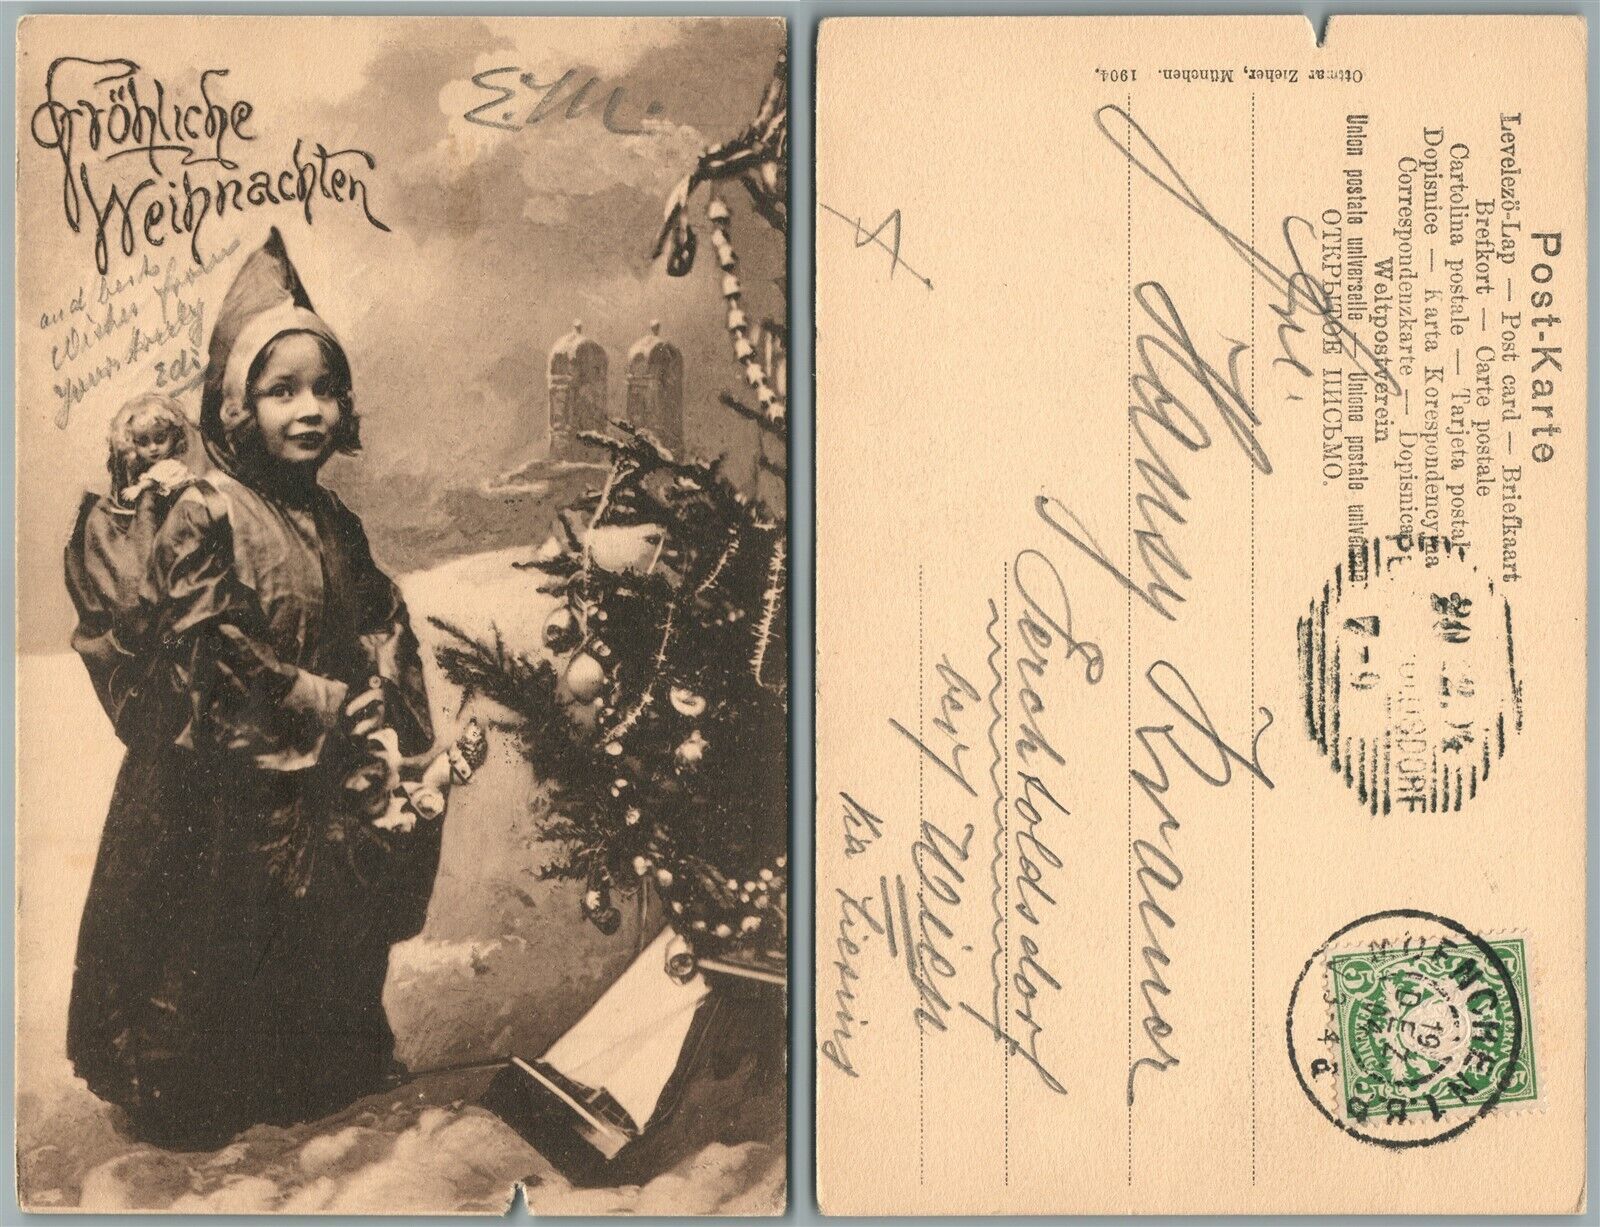 Fröhliche
Weihnachten
E.M.
and best
Wishes from
Your
Edi
Post-Karte
Levelező-Lap — Post card — Briefkaart
Brefkort — Carte postale
Cartolina postale — Tarjeta postal
Dopisnice — Karta Korespondencyjna
Correspondenzkarte — Dopisnica
Weltpostverein
Union postale universelle — Unione postale universale.
ОТКРЫТОЕ ПИСЬМО.
Ottmar Zieher, München. 1904.
Hansy Kramer
Perchtoldsdorf
bey Wien
Via Liesing
20 12 04
7-9
MUENCHEN 1. B.P.
19 DEZ
04
N. 3-4
5 BAYERN 5